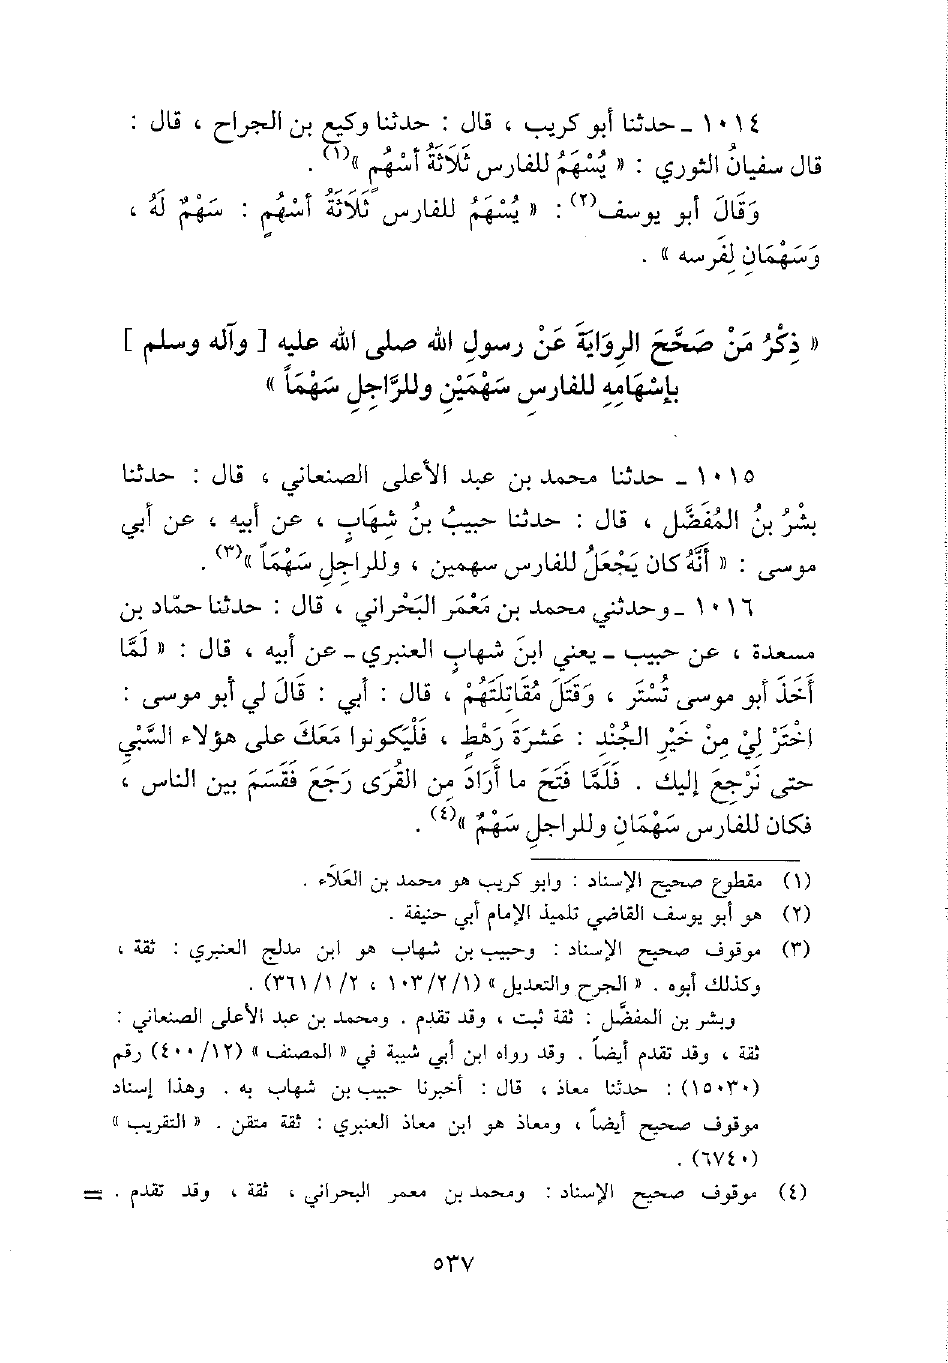 ١٠١٤ ـ حدثنا أبو كريب ، قال : حدثنا وكيع بن الجراح ، قال :
قال سفيانُ الثوري : « يُسْهَمُ للفارس ثَلَاثَةُ أسْهُمٍ »(١) .
وَقَالَ أبو يوسف(٢) : « يُسْهَمُ للفارسِ ثَلَاثَةُ أسْهُمٍ : سَهْمٌ لَهُ ،
وَسَهْمَانِ لِفَرسه » .
« ذِكْرُ مَنْ صَحَّحَ الرِوَايَةَ عَنْ رسولِ الله صلى الله عليه [ وآله وسلم ]
بإسْهَامِهِ للفارسِ سَهْمَيْنِ وللرَّاجِلِ سَهْمَاً »
١٠١٥ ـ حدثنا محمد بن عبد الأعلى الصنعاني ، قال : حدثنا
بِشْرُ بنُ المُفَضَّل ، قال : حدثنا حبيبُ بنُ شِهَابٍ ، عن أبيه ، عن أبي
موسى : « أَنَّهُ كان يَجْعَلُ للفارس سهمين ، وللراجِلِ سَهْمَاً »(٣) .
١٠١٦ ـ وحدثني محمد بن مَعْمَر البَحْراني ، قال : حدثنا حمّاد بن
مسعدة ، عن حبيب ـ يعني ابنَ شهابٍ العنبري ـ عن أبيه ، قال : « لَمَّا
أَخَذَ أبو موسى تُسْتَر ، وَقَتَلَ مُقَاتِلَتَهُمْ ، قال : أبي : قَالَ لي أبو موسى :
اخْتَرْ لِيْ مِنْ خَيْرِ الجُنْدِ : عَشرَةَ رَهْطٍ ، فَلْيَكونوا مَعَكَ على هؤلاء السَّبْيِ
حتى نَرْجِعَ إليك . فَلَمَّا فَتَحَ ما أَرَادَ مِن القُرَى رَجَعَ فَقَسَمَ بين الناس ،
فكان للفارس سَهْمَانِ وللراجلِ سَهْمٌ »(٤) .
(١) مقطوع صحيح الإسناد : وابو كريب هو محمد بن العَلَاء .
(٢) هو أبو يوسف القاضي تلميذ الإمام أبي حنيفة .
(٣) موقوف صحيح الإسناد : وحبيب بن شهاب هو ابن مدلج العنبري : ثقة ،
وكذلك أبوه . « الجرح والتعديل » (١٠٣/٢/١ ، ٣٦١/١/٢) .
وبشر بن المفضَّل : ثقة ثبت ، وقد تقدم . ومحمد بن عبد الأعلى الصنعاني :
ثقة ، وقد تقدم أيضاً . وقد رواه ابن أبي شيبة في « المصنف » (٤٠٠/١٢) رقم
(١٥٠٣٠) : حدثنا معاذ ، قال : أخبرنا حبيب بن شهاب به . وهذا إسناد
موقوف صحيح أيضاً ، ومعاذ هو ابن معاذ العنبري : ثقة متقن . « التقريب »
(٦٧٤٠) .
(٤) موقوف صحيح الإسناد : ومحمد بن معمر البحراني ، ثقة ، وقد تقدم . =
٥٣٧